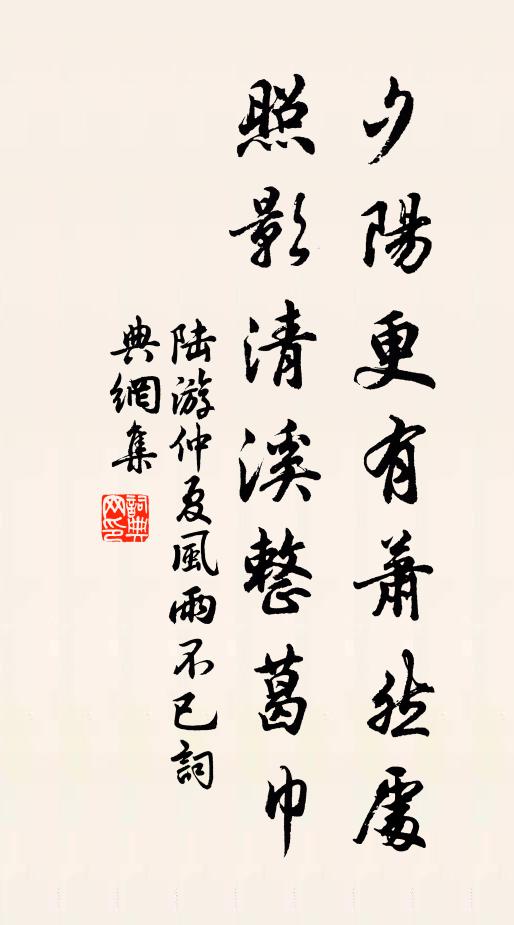 夕陽更有蕭然處
照影清溪整葛巾
陸游仲夏風雨不已詞
典網集
詞典網印